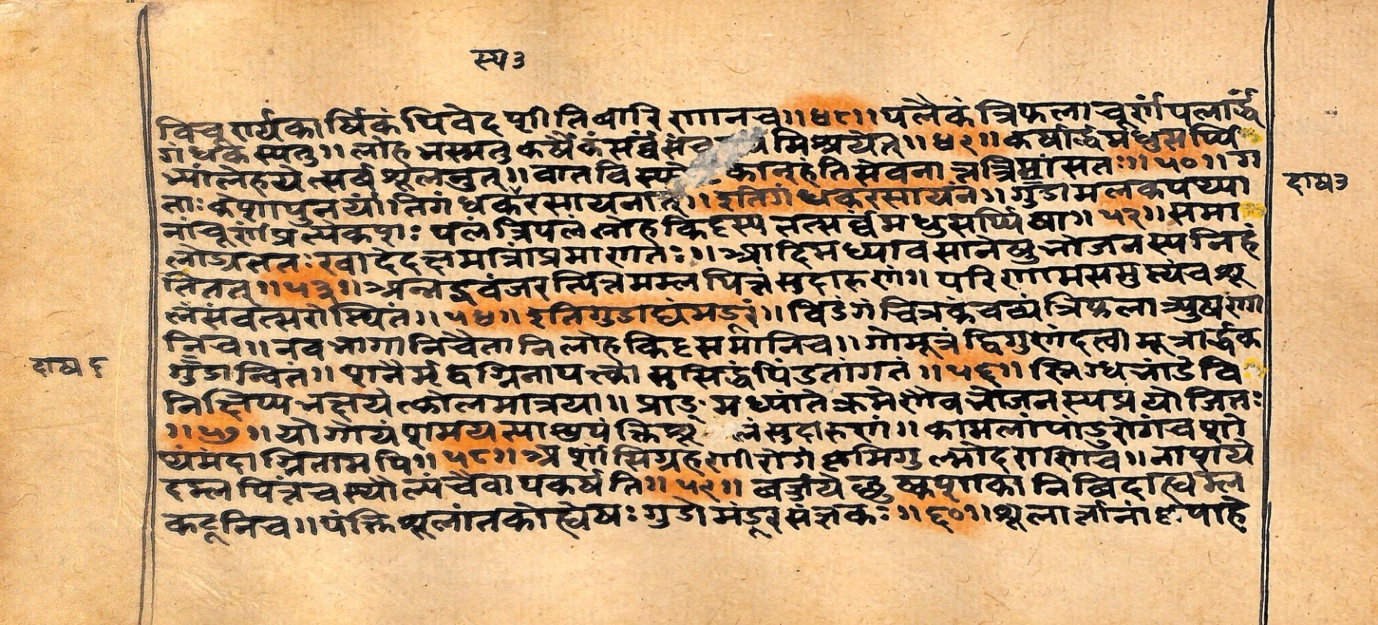 स्प ३
विचूर्ण्यकार्षिकं पिबेद पृ तिवारि णानच॥४८॥ पलैकं त्रिफलाचूर्णं पलार्द्धं
गंधकस्यतु॥ लोहभस्मतु कर्षैकं सर्वं मिश्रयेत्॥४९॥ कर्षार्द्धं मधुसर्पि
भ्यांलेहयेत्सर्वशूलनुत्॥ वातवि कान् हंतिसेवना त्रिभिर्मासतः॥५०॥ ग
ताः केशापुनर्यांतिगंधकरसायनात्॥ इतिगंधकरसायनं॥ गुडामलकपथ्या
नांचूर्णंप्रत्येकशः पलं त्रिपलं लोहकिट्टस्य तत्सर्वं मधुसर्पिषा॥५२॥ समा
लोड्यततः खादेदक्षमात्राप्रमाणतः॥ आदिमध्यावसानेषु भोजनस्यनिहं
तितत्॥५३॥ अन्नद्रवंजरत्पित्तमम्लपित्तं सुदारुणं॥ परिणामसमुत्थंच शू
लंसंवत्सरोत्थितं॥५४॥ इतिगुडाद्यंमंडूरं॥ विडंगंचित्रकंचव्यं त्रिफलात्र्यूषणा
निच॥ नवभागानिचैतानिलोहकिट्टसमानिच॥ गोमूत्रं द्विगुणंदत्वा मूत्रार्द्धक
गुडान्वितं॥ शनैर्मृद्वग्निनापक्त्वा सुसिद्धंपिंडतांगतं॥५६॥ स्निग्धभांडेवि
निक्षिप्य भक्षयेत्कोलमात्रया॥ प्राङ्मध्यांतेक्रमेणैव भोजनस्यप्रयोजितः
॥५७॥ योगोयंशमयत्याशुपंक्तिशू लंसुदारुणं॥ कामलांपांडुरोगंच शो
थंमंदाग्नितामपि॥५८॥ अर्शांसिग्रहणीरोगंकृमिगुल्मोदराणिच॥ नाशये
दम्लपित्तंचस्थौल्यंचैवापकर्षति॥५९॥ वर्जयेच्छुष्कशाकानिविदाह्यम्ल
कटूनिच॥ पंक्तिशूलांतकोह्येषः गुडोमंडूरसंज्ञकः॥६०॥ शूलार्त्तानां पाहि